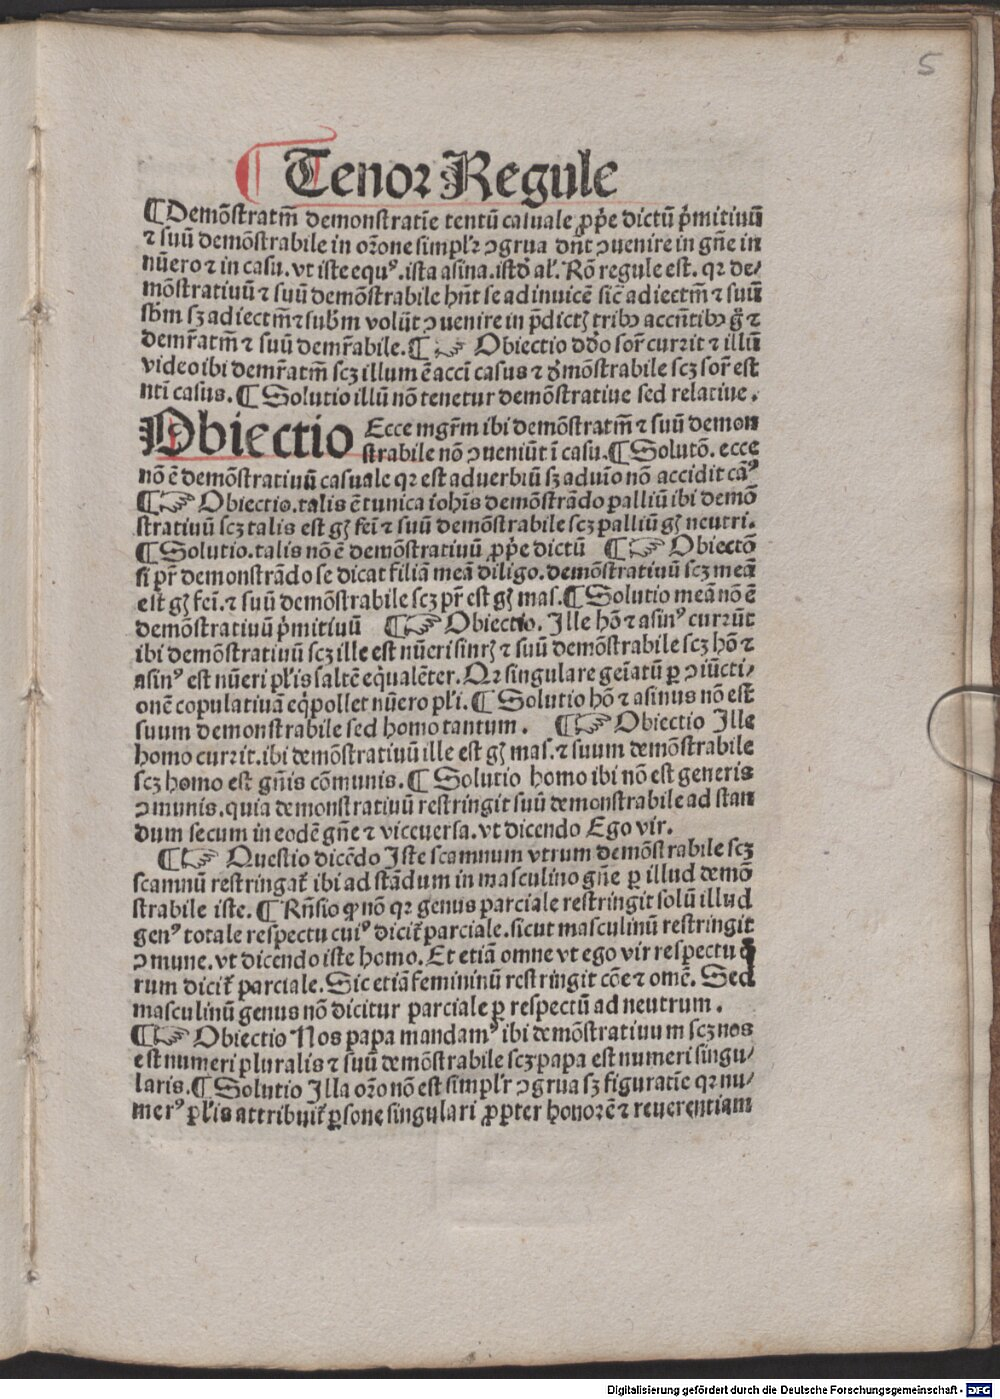 5
Tenor Regule
¶ Demõstratm̃ demonstratie tentũ casuale ꝓpe dictũ p̃mitiuũ
⁊ suũ demõstrabile in or̃one simplr̃ ↄgrua dnt ↄuenire in gñe in
nũero ⁊ in casu. vt iste equꝰ. ista asina. istđ al'. Rõ regule est. qꝛ de⸗
mõstratiuũ ⁊ suũ demõstrabile hñt se ad inuicẽ sic̃ adiectm̃ ⁊ suũ
sb̃m sꝫ adiectm̃ ⁊ sub̃m volũt ↄuenire in p̃dictꝭ tribꝰ accñtibꝰ g̃ ⁊
demr̃atm̃ ⁊ suũ demr̃abile. ¶ ☞ Obiectio dđo sor̃ currit ⁊ illũ
video ibi demr̃atm̃ scꝫ illum ẽ acci casus ⁊ đmõstrabile scꝫ sor̃ est
nti casus. ¶ Solutio illũ nõ tenetur demõstratiue sed relatiue.
Obiectio Ecce mgr̃m ibi demõstratm̃ ⁊ suũ demon
strabile nõ ↄueniũt ĩ casu. ¶ Solutõ. ecce
nõ ẽ demõstratiuũ casuale qꝛ est aduerbiũ sꝫ aduĩo nõ accidit cãꝰ
¶ ☞ Obiectio. talis ẽ tunica iohĩs demõstrãdo palliũ ibi demõ
stratiuũ scꝫ talis est gꝭ fei ⁊ suũ demõstrabile scꝫ palliũ gꝭ neutri.
¶ Solutio. talis nõ ẽ demõstratiuũ ꝓpe dictũ ¶ ☞ Obiectõ
si pr̃ demonstrãdo se dicat filiã meã diligo. demõstratiuũ scꝫ meã
est gꝭ fei. ⁊ suũ demõstrabile scꝫ pr̃ est gꝭ mas. ¶ Solutio meã nõ ẽ
demõstratiuũ p̃mitiuũ ¶ ☞ Obiectio. Ille hõ ⁊ asinꝰ currũt
ibi demõstratiuũ scꝫ ille est nũeri sinrꝭ ⁊ suũ demõstrabile scꝫ hõ ⁊
asinꝰ est nũeri pl'is saltẽ eq̃ualẽter. Qꝛ singulare geĩatũ ꝑ ↄiũcti⸗
onẽ copulatiuã eq̃pollet nũero pl'i. ¶ Solutio hõ ⁊ asinus nõ est
suum demonstrabile sed homo tantum. ¶ ☞ Obiectio Ille
homo currit. ibi demõstratiuũ ille est gꝭ mas. ⁊ suum demõstrabile
scꝫ homo est gñis cõmunis. ¶ Solutio homo ibi nõ est generis
ↄmunis. quia demonstratiuũ restringit suũ demonstrabile ad stan
dum secum in eodẽ gñe ⁊ viceuersa. vt dicendo Ego vir.
¶ ☞ Questio dicẽdo Iste scamnum vtrum demõstrabile scꝫ
scamnũ restringat̃ ibi ad stãdum in masculino gñe ꝑ illud demõ
strabile iste. ¶ Rñsio ꝙ nõ qꝛ genus parciale restringit solũ illud
genꝰ totale respectu cuiꝰ dicit̃ parciale. sicut masculinũ restringit
ↄmune. vt dicendo iste homo. Et etiã omne vt ego vir respectu q̃
rum dicit̃ parciale. Sic etiã femininũ restringit cõe ⁊ omẽ. Sed
masculinũ genus nõ dicitur parciale ꝑ respectũ ad neutrum.
¶ ☞ Obiectio Nos papa mandamꝰ ibi demõstratiuum scꝫ nos
est numeri pluralis ⁊ suũ demõstrabile scꝫ papa est numeri singu⸗
laris. ¶ Solutio Illa or̃o nõ est simplr̃ ↄgrua sꝫ figuratie qꝛ nu⸗
merꝰ pl'is attribuit̃ ꝑsone singulari ꝓpter honorẽ ⁊ reuerentiam
Digitalisierung gefördert durch die Deutsche Forschungsgemeinschaft - DFG